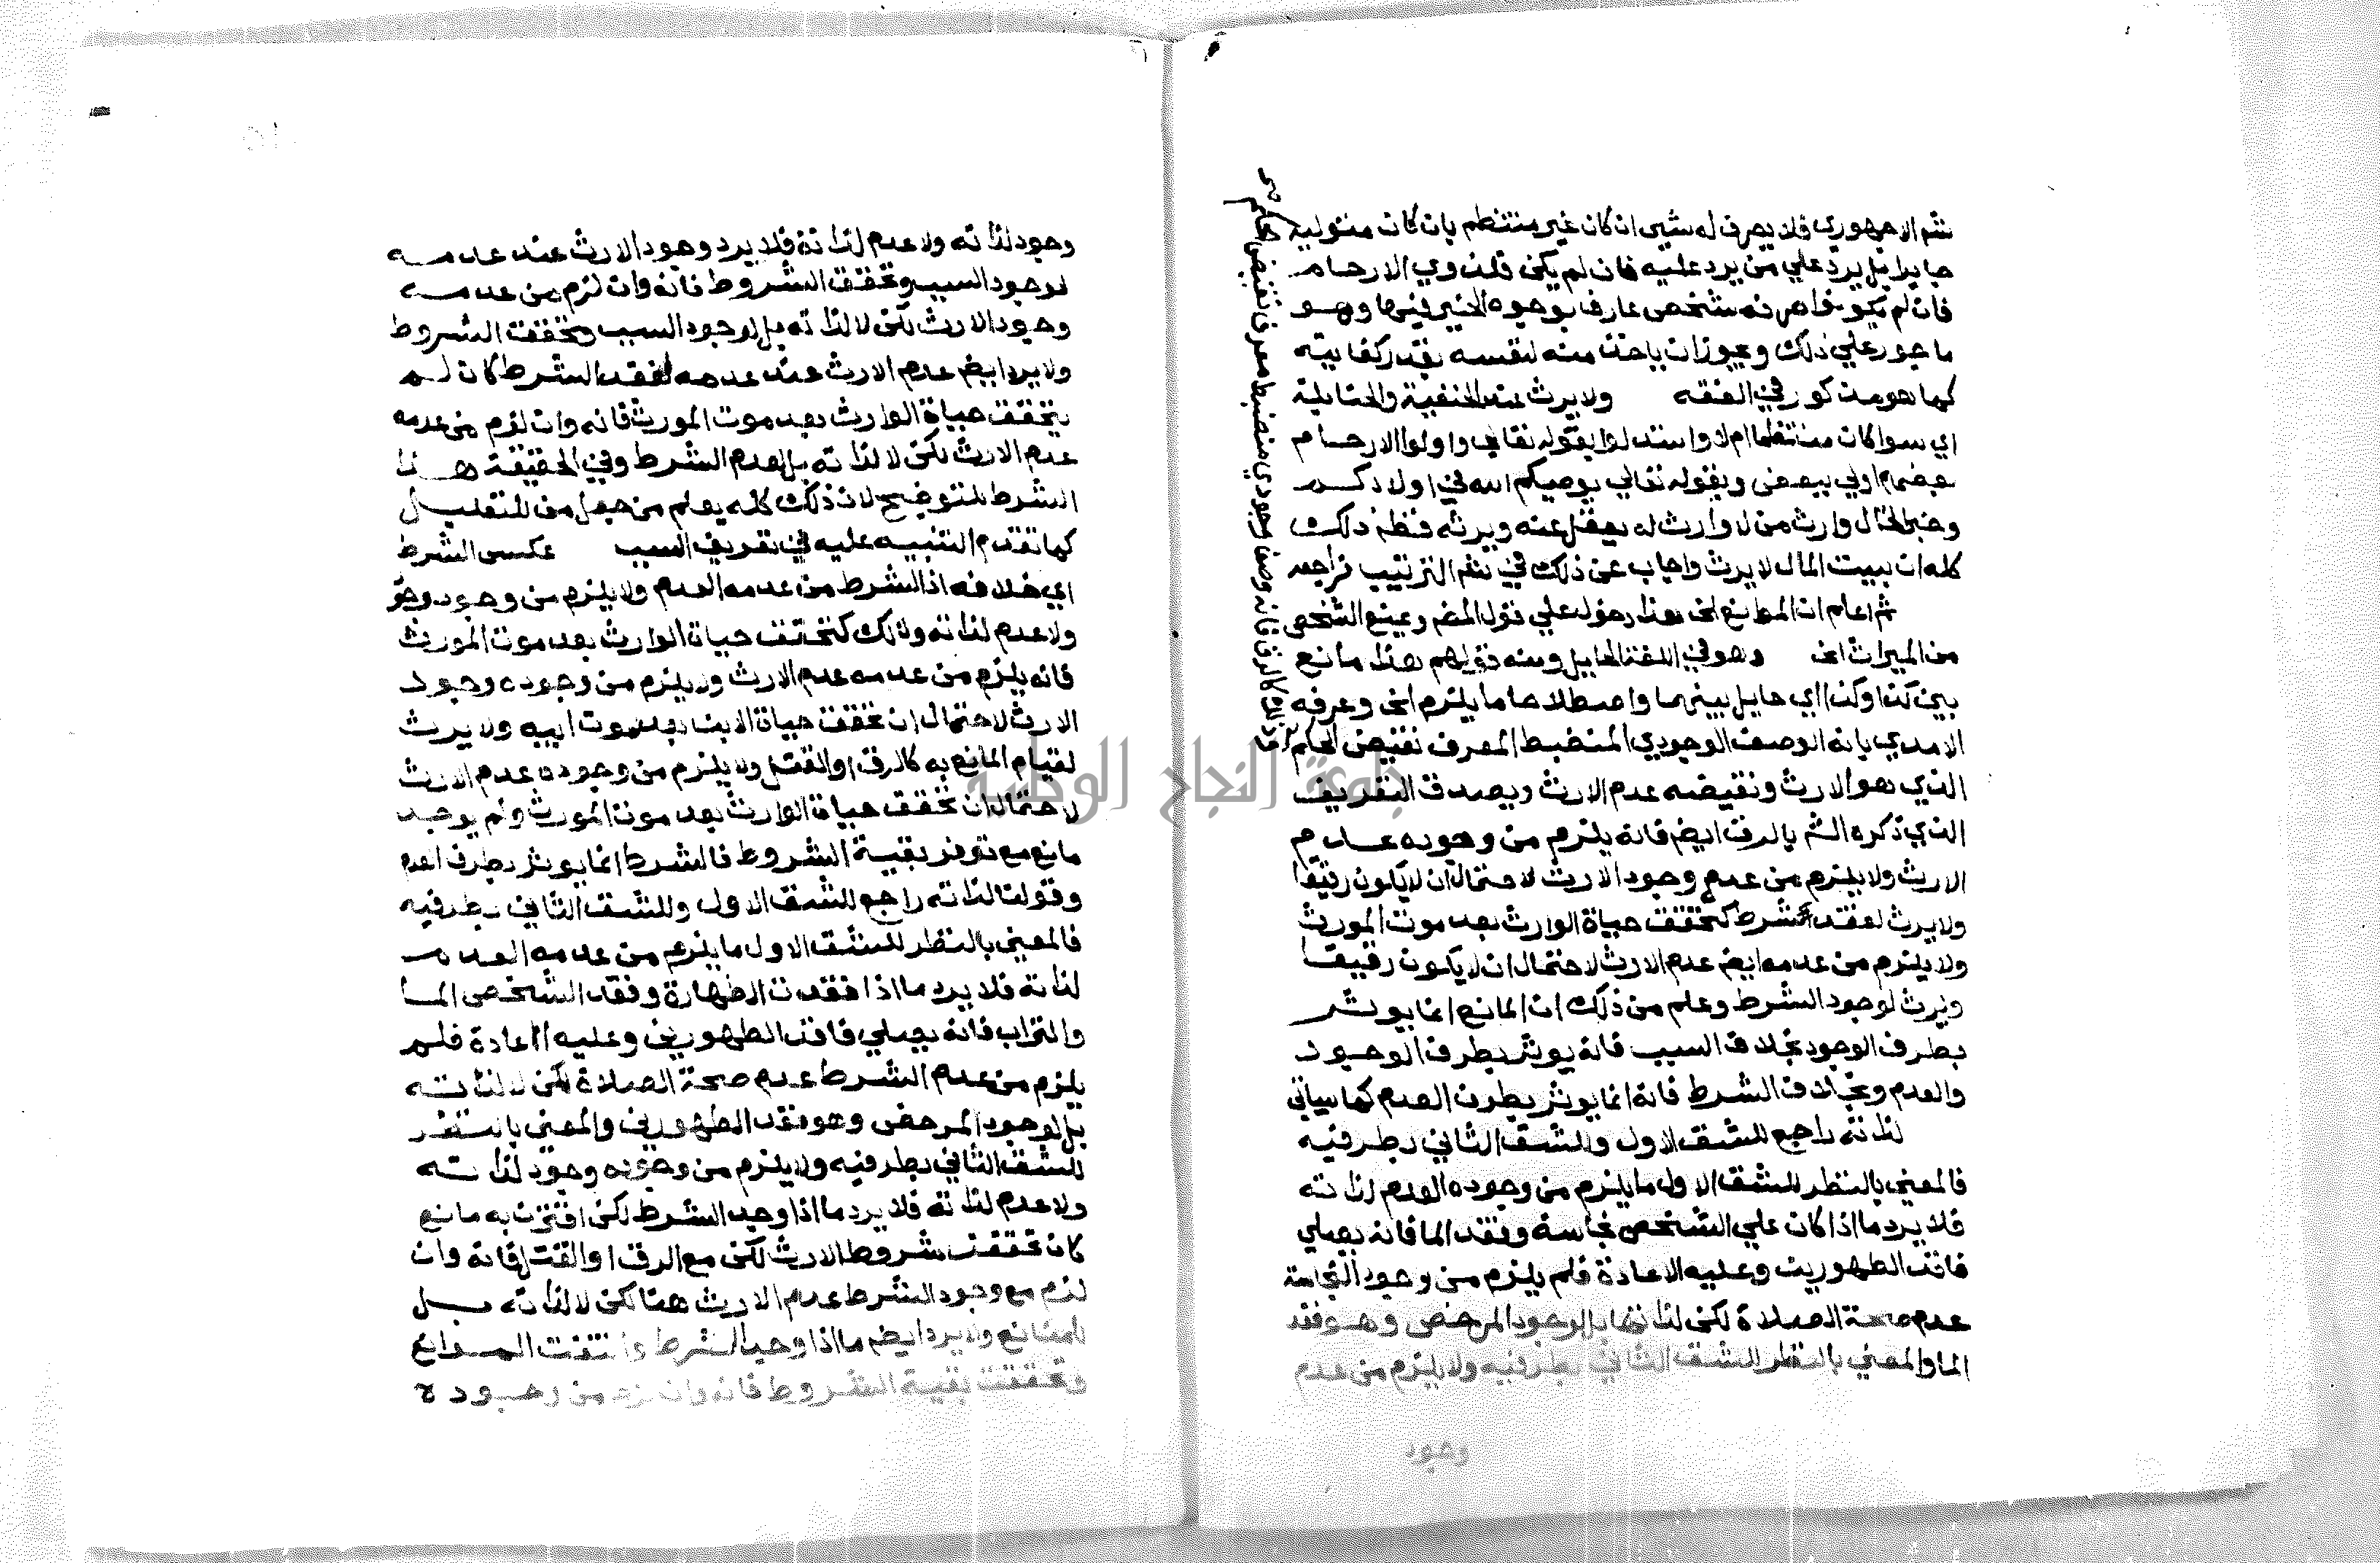 شم الاجهوري فلا يصرف له شيى ان كان غير منتظم بان كان متوليه
جايرا بل يرد علي من يرد عليه فان لم يكن فلذوي الارحام
فان لم يكونوا صرفه شخص عارف بوجوه الخير فيها وهو
ماجور علي ذلك ويجوز ان ياخذ منه لنفسه بقدر كفايته
كما هو مذكور في الفقه ولا يرث عند الحنفية والحنابلة
اي سوا كان منتظما ام لا واستدلوا بقوله تعالي واولوا الارحام
بعضهم اولي ببعض وبقوله تعالي يوصيكم الله في اولادكم
وخبر الخال وارث من لا وارث له يعقل عنه ويرثه فنظم ذلك
كله ان بيت المال لا يرث واجاب عن ذلك في شم الترتيب فراجعه
ثم اعلم ان الموانع الخ هذا دخول علي قول المصم ويمنع الشخص
من الميراث الخ وهو في اللغة الحايل ومنه قولهم هذا مانع
بين كذا وكذا اي حايل بينهما واصطلاحا ما يلزم الخ وعرفه
الامدي بانه الوصف الوجودي المنضبط المعرف نقيض الحكم
الذي هو الارث ونقيضه عدم الارث ويصدق التعريف
الذي ذكره الشم بالرق ايضم فانه يلزم من وجوده عدم
الارث ولا يلزم من عدمه وجود الارث لاحتمال ان لا يكون رقيقا
ولا يرث لفقد شرط كتحقق حياة الوارث بعد موت المورث
ولا يلزم من عدمه ايضم عدم الارث لاحتمال ان لا يكون رقيقا
ويرث لوجود الشرط وعلم من ذلك ان المانع انما يوثر
بطرف الوجود بخلاف السبب فانه يوثر بطرف الوجود
والعدم وبخلاف الشرط فانه انما يوثر بطرف العدم كما سياتي
لذاته راجع للشق الاول وللشق الثاني بطرفيه
فالمعني بالنظر للشق الاول ما يلزم من وجوده العدم لذاته
فلا يرد ما اذا كان علي الشخص نجاسة وفقد الما فانه يصلي
فاقد الطهورين وعليه الاعادة فلم يلزم من وجود النجاسة
عدم صحة الصلاة لكن لذاتها بل لوجود المرخص وهو فقد
الما والمعني بالنظر للشق الثاني بطرفيه ولا يلزم من عدم
وجود
وصفا وجودي منضبط معرف نقيض الحكم
وجود لذاته ولا عدم لذاته فلا يرد وجود الارث عند عدمه
لوجود السبب وتحقق الشروط فانه وان لزم من عدمه
وجود الارث لكن لا لذاته بل لوجود السبب وتحقق الشروط
ولا يرد ايضم عدم الارث عند عدمه لفقد الشرط كان لم
يتحقق حياة الوارث بعد موت المورث فانه وان لزم من عدمه
عدم الارث لكن لا لذاته بل لعدم الشرط وفي الحقيقة هذا
الشرط للتوضيح لان ذلك كله يعلم من جعل من للتعليل
كما تقدم التنبيه عليه في تعريف السبب عكس الشرط
اي خلافه اذ الشرط من عدمه العدم ولا يلزم من وجوده وجو
ولا عدم لذاته وذلك كتحقق حياة الوارث بعد موت المورث
فانه يلزم من عدمه عدم الارث ولا يلزم من وجوده وجود
الارث لاحتمال ان تحقق حياة الابن بعد موت ابيه ولا يرث
لقيام المانع به كالرق او القتل ولا يلزم من وجوده عدم الارث
لاحتمال ان تحقق حياة الوارث بعد موت المورث ولم يوجد
مانع مع توفر بقية الشروط فالشرط انما يوثر بطرف العدم
وقولنا لذاته راجع للشق الاول وللشق الثاني بطرفيه
فالمعني بالنظر للشق الاول ما يلزم من عدمه العدم
لذاته فلا يرد ما اذا فقدت الطهارة وفقد الشخص الما
والتراب فانه يصلي فاقد الطهورين وعليه الاعادة فلم
يلزم من عدم الشرط عدم صحة الصلاة لكن لا لذاته
بل لوجود المرخص وهو فقد الطهورين والمعني بالنظر
للشق الثاني بطرفيه ولا يلزم من وجوده وجود لذاته
ولا عدم لذاته فلا يرد ما اذا وجد الشرط لكن اقترن به مانع
كان تحققت شروط الارث لكن مع الرق او القتل فانه وان
لزم مع وجود الشرط عدم الارث هنا لكن لا لذاته بل
للمانع ولا يرد ايضم ما اذا وجد الشرط وانتفت الموانع
وتحققت بقية الشروط فانه وان لزم من وجوده
جامعة النجاح الوطنية